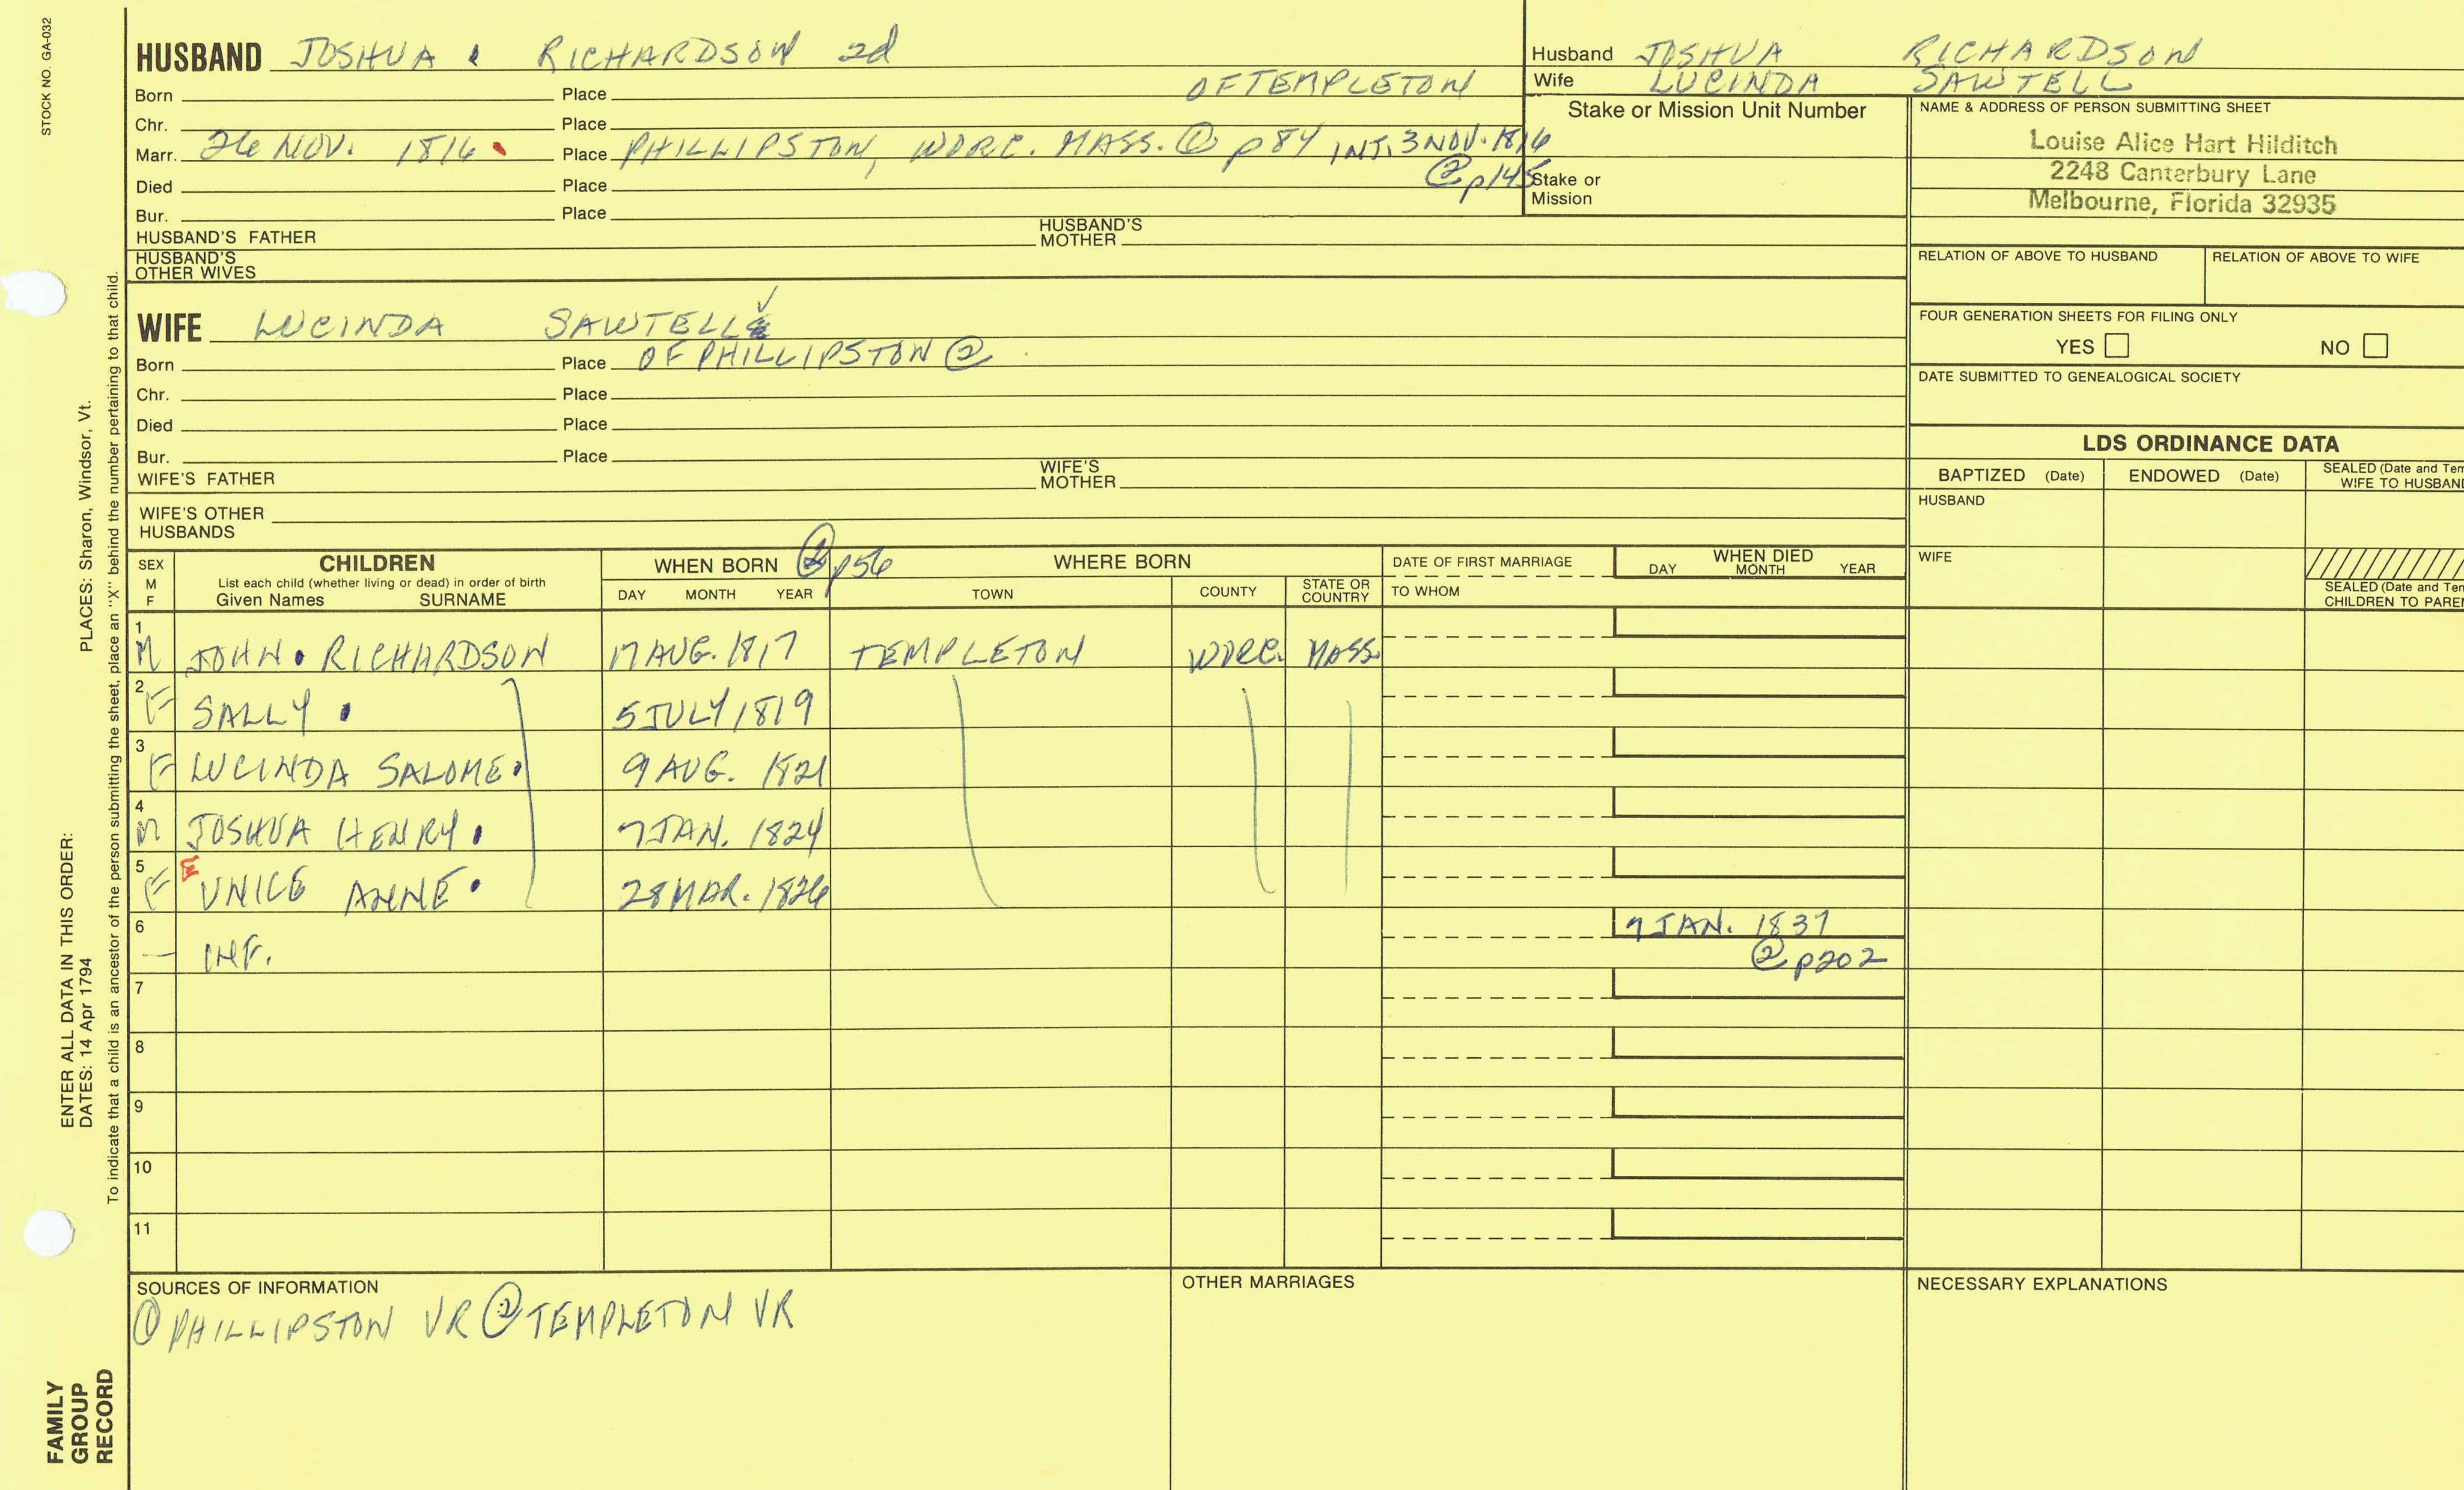 STOCK NO. GA-032
HUSBAND JOSHUA RICHARDSON 2d
Born Place OF TEMPLETON
Chr. Place
Marr. 26 NOV. 1816 Place PHILLIPSTON, WORC. MASS. ① p84 INT. 3 NOV. 1816
② p145
Died Place
Bur. Place
HUSBAND'S FATHER HUSBAND'S MOTHER
HUSBAND'S OTHER WIVES
Husband JOSHUA RICHARDSON
Wife LUCINDA SAWTELL
Stake or Mission Unit Number
Stake or
Mission
NAME & ADDRESS OF PERSON SUBMITTING SHEET
Louise Alice Hart Hilditch
2248 Canterbury Lane
Melbourne, Florida 32935
RELATION OF ABOVE TO HUSBAND RELATION OF ABOVE TO WIFE
FOUR GENERATION SHEETS FOR FILING ONLY
YES NO
DATE SUBMITTED TO GENEALOGICAL SOCIETY
WIFE LUCINDA SAWTELL
Born Place OF PHILLIPSTON ②
Chr. Place
Died Place
Bur. Place
WIFE'S FATHER WIFE'S MOTHER
WIFE'S OTHER
HUSBANDS
LDS ORDINANCE DATA
BAPTIZED (Date) ENDOWED (Date) SEALED (Date and Tem
WIFE TO HUSBAN
HUSBAND
WIFE
SEALED (Date and Tem
CHILDREN TO PARE
SEX
M
F
CHILDREN
List each child (whether living or dead) in order of birth
Given Names SURNAME
WHEN BORN ② p56
DAY MONTH YEAR
WHERE BORN
TOWN COUNTY STATE OR COUNTRY
DATE OF FIRST MARRIAGE
TO WHOM
WHEN DIED
DAY MONTH YEAR
1 M JOHN RICHARDSON 17 AUG. 1817 TEMPLETON WORC. MASS.
2 F SALLY 5 JULY 1819
3 F LUCINDA SALOME 9 AUG. 1821
4 M JOSHUA HENRY 7 JAN. 1824
5 F EUNICE ANNE 28 MAR. 1826
6 — INF. 7 JAN. 1837
② p202
7
8
9
10
11
SOURCES OF INFORMATION
① PHILLIPSTON VR ② TEMPLETON VR
OTHER MARRIAGES
NECESSARY EXPLANATIONS
ENTER ALL DATA IN THIS ORDER:
DATES: 14 Apr 1794 PLACES: Sharon, Windsor, Vt.
To indicate that a child is an ancestor of the person submitting the sheet, place an "X" behind the number pertaining to that child.
FAMILY
GROUP
RECORD